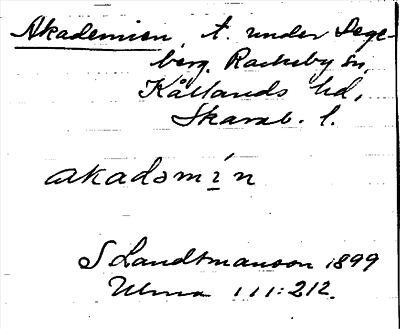 Akademien, t. under Sege-
berg. Rackeby sn,
Kållands hd,
Skarab. l.
akadəmín
S Landtmanson 1899
Ulma 111:212.